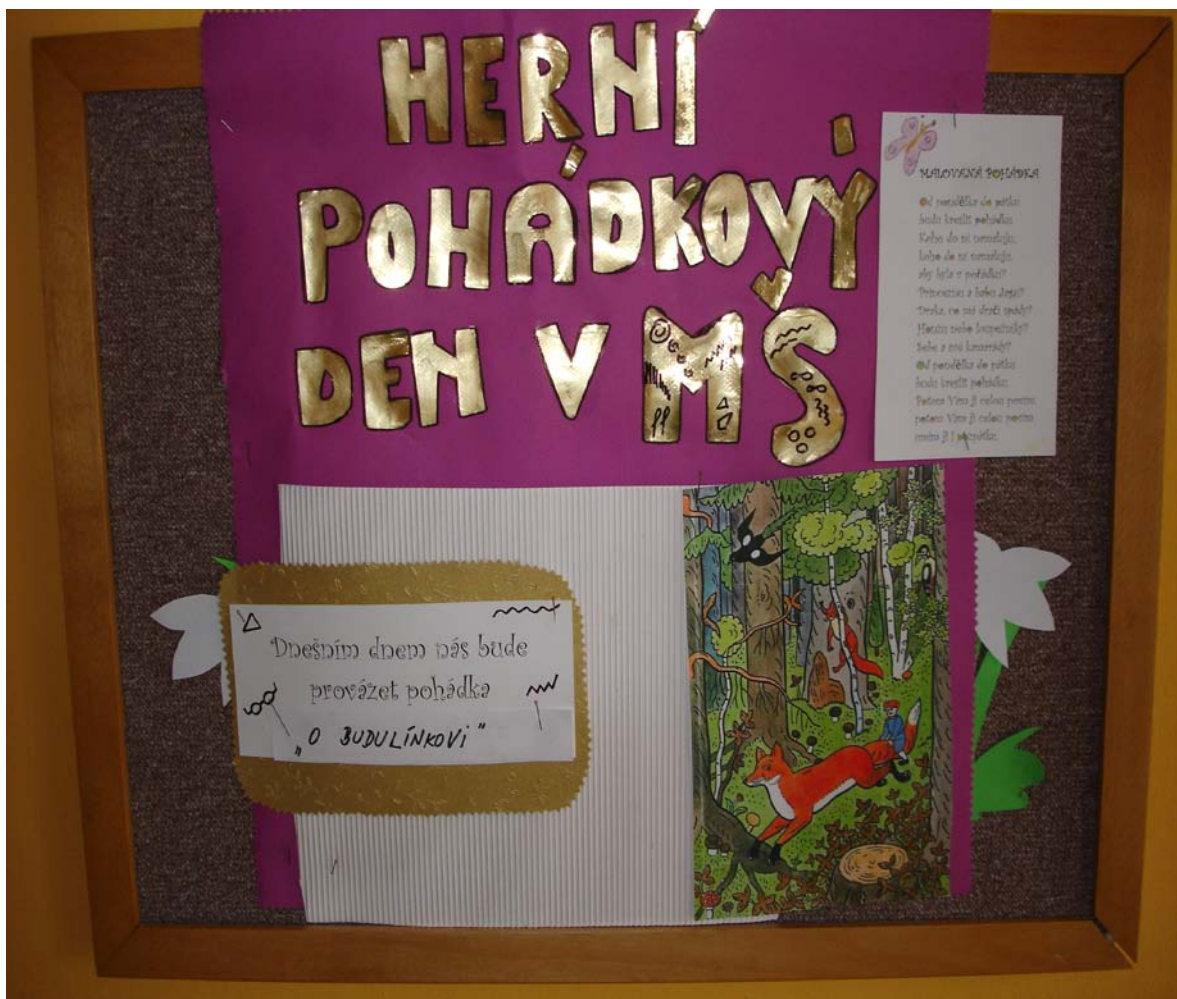 HERNÍ
POHÁDKOVÝ
DEN V MŠ
MALOVANÁ POHÁDKA
Od pondělka do pátku
budu kreslit pohádku.
Koho do ní namaluju,
koho do ní namaluju,
aby byla v pořádku?
Princeznu a babu Jagu?
Draka, co má dračí spády?
Honzu nebo loupežníky?
Sebe a mé kamarády?
Od pondělka do pátku
budu kreslit pohádku.
Potom Vám ji celou povím,
potom Vám ji celou povím
umím ji i pozpátku.
Dnešním dnem nás bude
provázet pohádka
„O BUDULÍNKOVI"